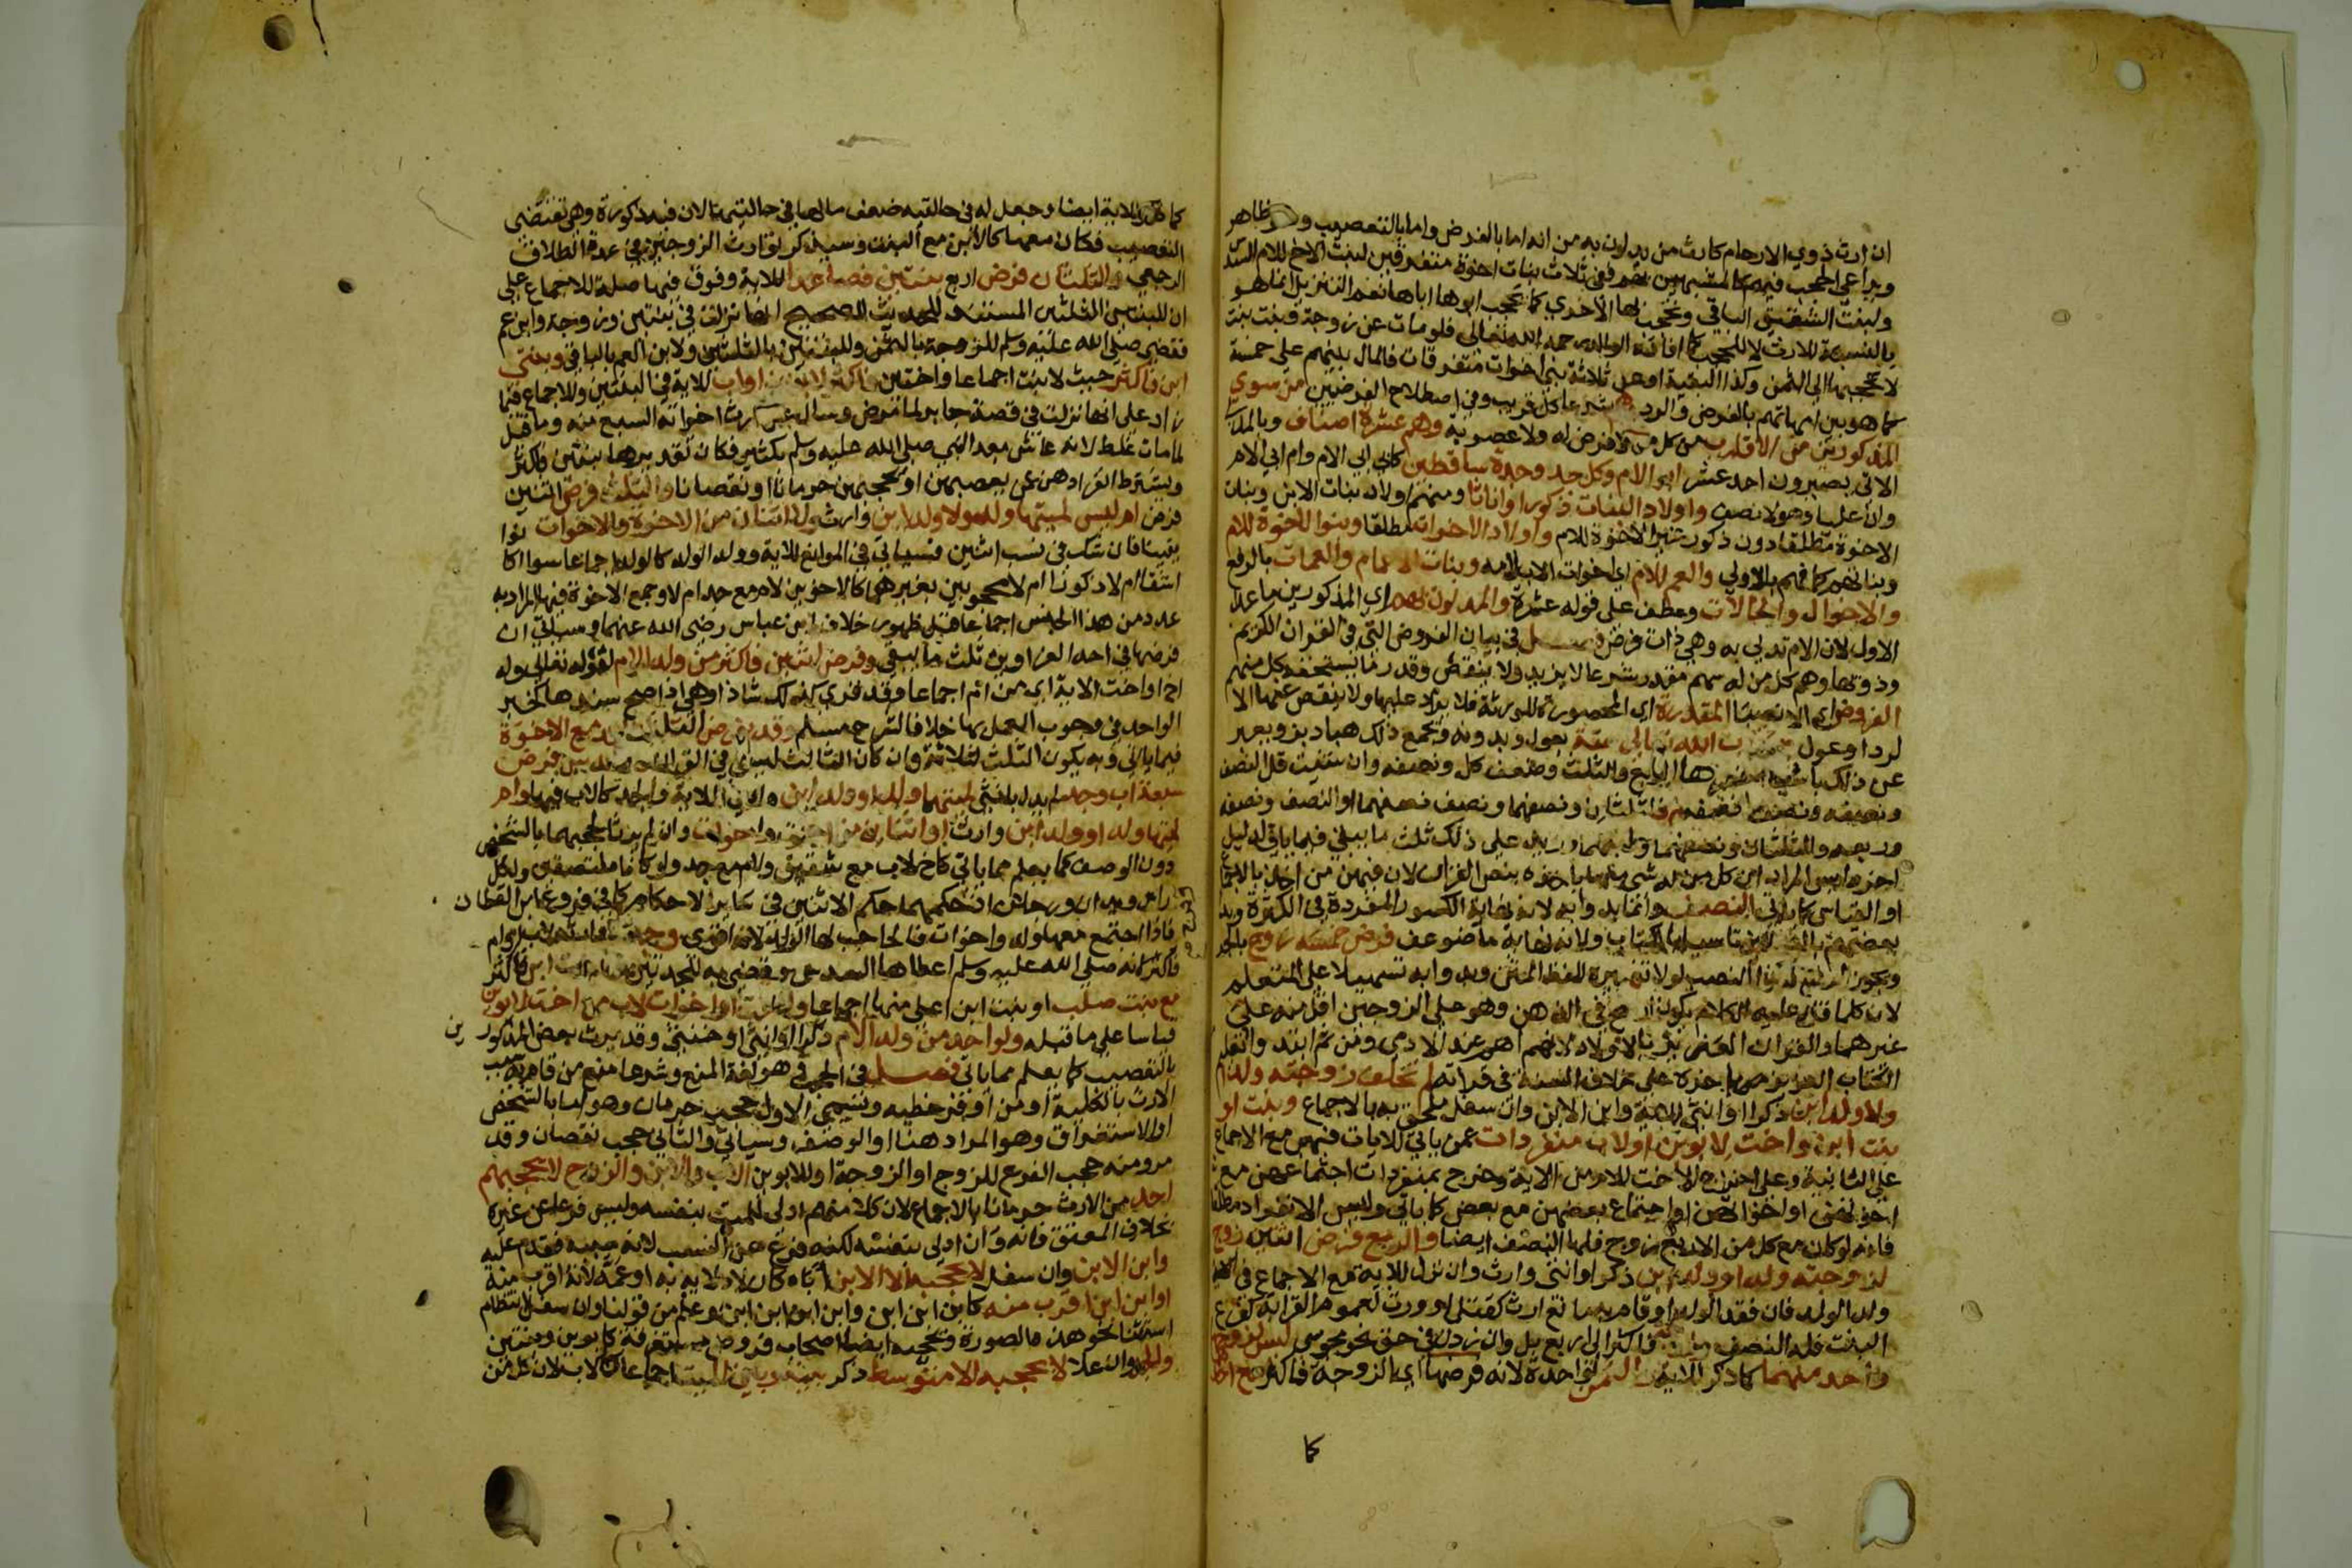 ان ارث ذوي الارحام كارث من يدلون به من انه اما بالفرض واما بالتعصيب وهو ظاهر
ويراعى الحجب فيهم كالمشبهين بهم ففي ثلاث بنات اخوة متفرقين لبنت الاخ للام السدس
ولبنت الشقيق الباقي وتحجب بها الاخرى كما يحجب ابوها اباها نعم التنزيل انما هو
بالنسبة للارث لا للحجب كما افاده الوالد رحمه الله تعالى فلو مات عن زوجة وبنت بنت
لا تحجبها الى الثمن وكذا البقية او عن ثلاثة بني اخوات متفرقات فالمال بينهم على خمسة
كما هو بين امهاتهم بالفرض والرد شرعا كل قريب وفي اصطلاح الفرضيين من سوى
المذكورين من الاقارب من كل من لا فرض له ولا عصوبة وهم عشرة اصناف وبالمدلي
الاتي يصيرون احد عشر ابو الام وكل جد وجدة ساقطين كابي ابي الام وام ابي الام
وان عليا وهولا صنف واولاد البنات ذكورا واناثا ومنهم اولاد بنات الابن وبنات
الاخوة مطلقا دون ذكور غير الاخوة للام واولاد الاخوات مطلقا وبنوا الاخوة للام
وبناتهم كما فهم بالاولى والعم للام اي اخوات الاب لامه وبنات الاعمام والعمات بالرفع
والاخوال والخالات وعطف على قوله عشرة والمدلون بهم اي المذكورين ما عدا
الاول لان الام تدلي به وهي ذات فرض فصل في بيان الفروض التي في القران الكريم
وذويها وهم كل من له سهم مقدر شرعا لا يزيد ولا ينقص وقدر ما يستحقه كل منهم
الفروض اي الانصبا المقدرة اي المحصورة للورثة فلا يزاد عليها ولا ينقص عنها الا
لرد او عول في كتاب الله تعالى ستة بعول وبدونه ويجمع ذلك هبادبز ويعبر
عن ذلك بعبارات اخصرها الربع والثلث وضعف كل ونصفه وان شئت قل النصف
ونصفه ونصف نصفه والثلثان ونصفهما ونصف نصفهما او النصف ونصفه
وربعه والثلثان ونصفهما وربعهما وزيد على ذلك ثلث ما يبقى فيما ياتي لدليل
اخر وليس المراد ان كل من له شي منها ياخذه بنص القران لان فيهن من اخذ بالاجماع
او القياس كما ياتي النصف وانما بدوا به لانه نهاية الكسور المفردة في الكثرة وبدا
بعضهم بالثلثين تاسيا بالكتاب ولانه نهاية ما ضوعف فرض خمسة زوج بالجر
ويجوز الرفع لولا تغييره للفظ المتن وبدوا به تسهيلا على المتعلم
لان كلما قل عليه الكلام يكون ارسخ في الذهن وهو على الزوجين اقل منه على
غيرهما والقران العزيز بدا بالاولاد لانهم اهم عند الادمي ومن ثم ابتدا
الكتاب العزيز لم تخلف زوجته ولدا
ولا ولد ابن ذكرا او انثى للاية وابن الابن وان سفل ملحق به بالاجماع وبنت او
بنت ابن او اخت لابوين او لاب منفردات عمن ياتي للايات فيهن مع الاجماع
على الثانية وعلى اخراج الاخت للام من الاية وخرج بمنفردات اجتماعهن مع
اخوتهن او اخواتهن او اجتماع بعضهن مع بعض كما ياتي وليس الانفراد مطلقا
فانه لو كان مع كل من الاربع زوج فلها النصف ايضا والربع فرض اثنين زوج
لزوجته ولد او ولد ابن ذكر او انثى وارث وان نزل للاية مع الاجماع في
ولد الولد فان فقد الولد او قام به مانع ارث كقتل او ورث لعموم القرابة كفرع
البنت فله النصف وزوجة فاكثر الى اربع بل وان زدن في حق نحو مجوسي ليس لزوجها
واحد منهما كما ذكر للاية والثمن لواحدة لانه فرضها اي الزوجة فاكثر مع احدهما
كا
كما ذكر للاية ايضا وجعل له في حالتيه ضعف ما لها في حالتيها لان فيه ذكورة وهي تقتضي
التعصيب فكان معها كالابن مع البنت وسيذكر توارث الزوجين في عدة الطلاق
الرجعي والثلثان فرض اربع بنتين فصاعدا للاية وفوق فيها صلة للاجماع على
ان للبنتين الثلثين المستند للحديث الصحيح انها نزلت في بنتين وزوجة وابن عم
فقضى صلى الله عليه وسلم للزوجة بالثمن وللبنتين بالثلثين ولابن العم بالباقي وبنتي
ابن فاكثر حيث لا بنت اجماعا واختين فاكثر لابوين او لاب للاية في الثلثين وللاجماع فيما
زاد على انها نزلت في قصة جابر لما مرض وسال عن ارث اخواته السبع منه وما قيل
لما مات غلط لانه عاش بعد النبي صلى الله عليه وسلم بكثير فكان تقديرها بنتين فاكثر
ويشترط انفرادهن عمن يعصبهن او يحجبهن حرمانا او نقصانا والثلث فرض اثنين
فرض ام ليس لميتها ولد ولا ولد ابن وارث ولا اثنان من الاخوة والاخوات سوا
يقينا فان شك في نسب اثنين فسياتي في الموانع للاية وولد الولد كالولد اجماعا سوا اكانا
اشقا ام لا ذكورا ام لا محجوبين بغيرهما كالاخوين لام مع جد ام لا وجمع الاخوة فيها المراد به
عدد من هذا الجنس اجماعا قبل ظهور خلاف ابن عباس رضي الله عنهما وسياتي ان
فرضها في احد الغراوين ثلث ما يبقى وفرض اثنين فاكثر من ولد الام لقوله تعالى وله
اخ او اخت الاية اي من ام اجماعا وقد قرئ كذلك شاذا وهي اذا صح سندها كخبر
الواحد في وجوب العمل بها خلافا لشرح مسلم وقد يفرض الثلث للجد مع الاخوة
فيما ياتي وبه يكون الثلث لثلاثة وان كان الثالث ليس في القران والسدس فرض
سبعة اب وجد لم يدل بانثى لميتهما ولد او ولد ابن وارث للاية والجد كالاب فيها وام
لميتها ولد او ولد ابن وارث او اثنان من اخوة واخوات وان لم يرثا لحجبهما بالشخص
دون الوصف كما يعلم مما ياتي كاخ لاب مع شقيق ولام مع جد ولو كانا ملتصقين ولكل
راس ويدان ورجلان اذ حكمهما حكم الاثنين في سائر الاحكام كما في فروع ابن القطان
فاذا اجتمع معها ولد واخوات فالحاجب لها الولد لانه اقوى وجدة فاكثر لاب او ام
لانه صلى الله عليه وسلم اعطاها السدس وقضى به للجدتين وبنت ابن فاكثر
مع بنت صلب او بنت ابن اعلى منها اجماعا واخت او اخوات لاب مع اخت لابوين
قياسا على ما قبله ولواحد من ولد الام ذكرا او انثى او خنثى وقد يرث بعض المذكورين
بالتعصيب كما يعلم مما ياتي فصل في الحجب هو لغة المنع وشرعا منع من قام به سبب
الارث بالكلية او من اوفر حظيه ويسمى الاول حجب حرمان وهو اما بالشخص
او الاستغراق وهو المراد هنا او الوصف وسياتي والثاني حجب نقصان وقد
مر ومنه حجب الفرع للزوج او الزوجة او للابوين الاب والابن والزوج لا يحجبهم
احد من الارث حرمانا بالاجماع لان كلا منهم ادلى للميت بنفسه وليس فرعا عن غيره
بخلاف المعتق فانه وان ادلى بنفسه لكنه فرع عن النسب لانه مشبه به فقدم عليه
وابن الابن وان سفل لا يحجبه الا الابن اباه كان لادلائه به او عمه لانه اقرب منه
او ابن ابن اقرب منه كابن ابن ابن وابن ابن ابن ابن وعلم من قولنا وان سفل انتظام
استثنا نحو هذه الصورة ويحجبه ايضا اصحاب فروض مستغرقة كابوين وبنتين
والجد وان علا لا يحجبه الا متوسط ذكر بينه وبين الميت اجماعا كالاب لان كل من